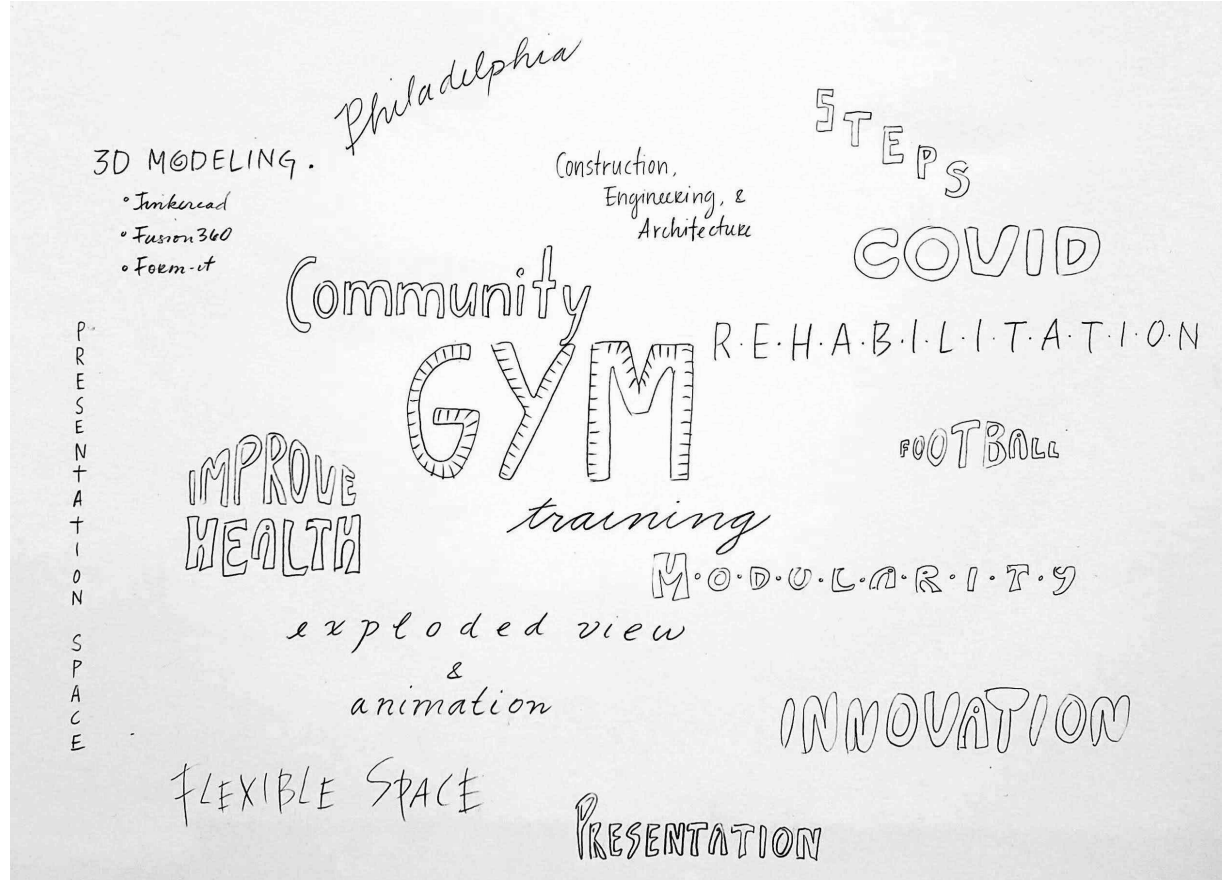 Philadelphia
STEPS
3D MODELING.
• Tinkercad
• Fusion360
• Form-it
Construction,
Engineering, &
Architecture
COVID
Community
GYM
R·E·H·A·B·I·L·I·T·A·T·I·O·N
PRESENTATION SPACE
FOOTBALL
IMPROVE
HEALTH
training
M·O·D·U·L·A·R·I·T·Y
exploded view
&
animation
INNOVATION
FLEXIBLE SPACE
PRESENTATION